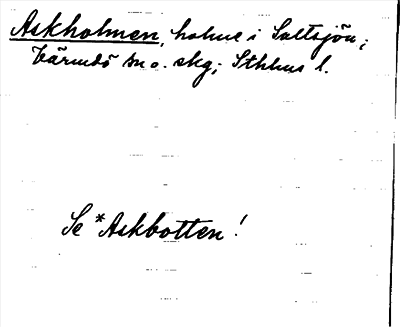 Askholmen, holme i Saltsjön;
Värmdö sn o. skg; Sthlms l.
Se *Askbotten!